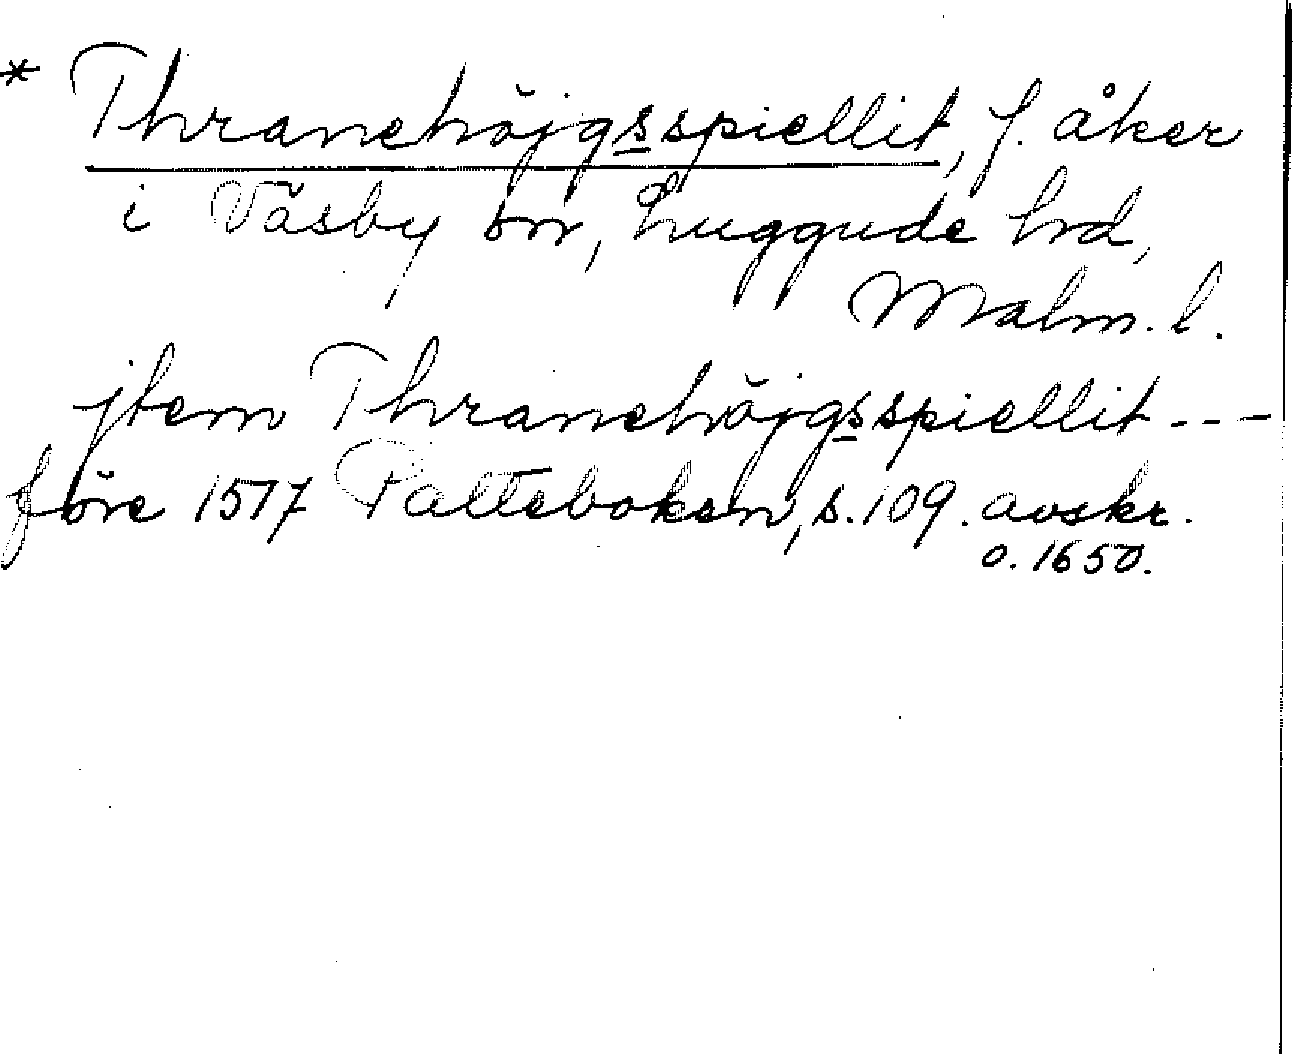 * Thranehöjgsspiellit, f. åker
i Väsby sn, Luggude hd,
Malm. l.
jtem Thranehöjgsspiellit ---
före 1577 Palteboken, s. 109. avskr.
o. 1650.